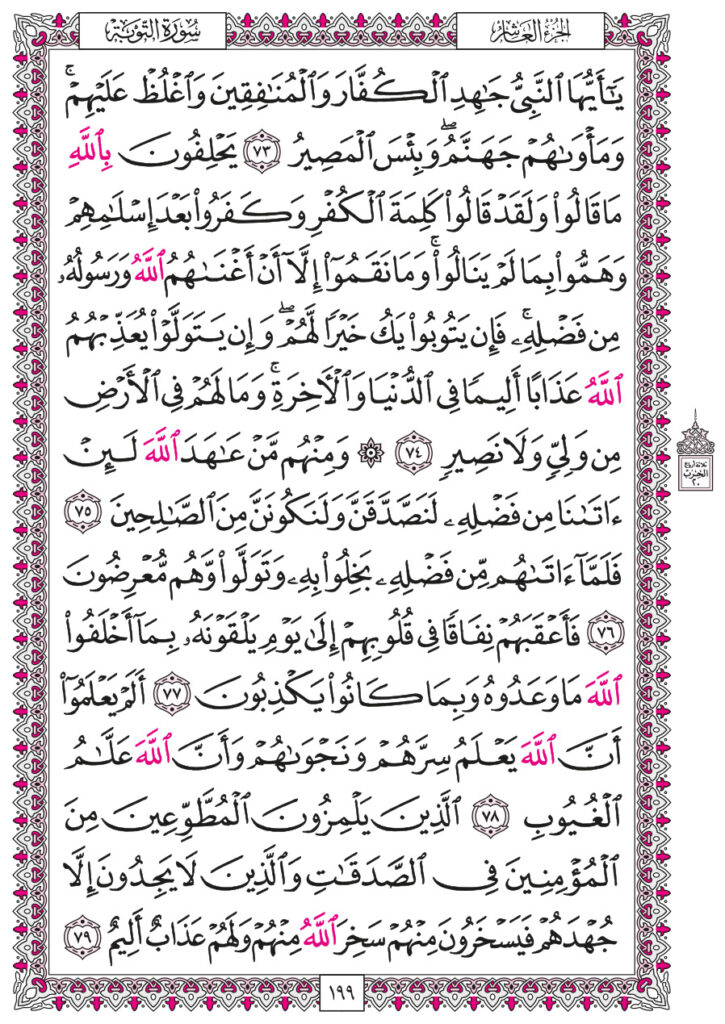 الجزء العاشر
سورة التوبة
يَـٰٓأَيُّهَا ٱلنَّبِيُّ جَـٰهِدِ ٱلۡكُفَّارَ وَٱلۡمُنَـٰفِقِينَ وَٱغۡلُظۡ عَلَيۡهِمۡۚ
وَمَأۡوَىٰهُمۡ جَهَنَّمُۖ وَبِئۡسَ ٱلۡمَصِيرُ ٧٣ يَحۡلِفُونَ بِٱللَّهِ
مَا قَالُواْ وَلَقَدۡ قَالُواْ كَلِمَةَ ٱلۡكُفۡرِ وَكَفَرُواْ بَعۡدَ إِسۡلَـٰمِهِمۡ
وَهَمُّواْ بِمَا لَمۡ يَنَالُواْۚ وَمَا نَقَمُوٓاْ إِلَّآ أَنۡ أَغۡنَىٰهُمُ ٱللَّهُ وَرَسُولُهُۥ
مِن فَضۡلِهِۦۚ فَإِن يَتُوبُواْ يَكُ خَيۡرٗا لَّهُمۡۖ وَإِن يَتَوَلَّوۡاْ يُعَذِّبۡهُمُ
ٱللَّهُ عَذَابًا أَلِيمٗا فِي ٱلدُّنۡيَا وَٱلۡأٓخِرَةِۚ وَمَا لَهُمۡ فِي ٱلۡأَرۡضِ
مِن وَلِيّٖ وَلَا نَصِيرٖ ٧٤ ۞ وَمِنۡهُم مَّنۡ عَـٰهَدَ ٱللَّهَ لَئِنۡ
ءَاتَىٰنَا مِن فَضۡلِهِۦ لَنَصَّدَّقَنَّ وَلَنَكُونَنَّ مِنَ ٱلصَّـٰلِحِينَ ٧٥
فَلَمَّآ ءَاتَىٰهُم مِّن فَضۡلِهِۦ بَخِلُواْ بِهِۦ وَتَوَلَّواْ وَّهُم مُّعۡرِضُونَ
٧٦ فَأَعۡقَبَهُمۡ نِفَاقٗا فِي قُلُوبِهِمۡ إِلَىٰ يَوۡمِ يَلۡقَوۡنَهُۥ بِمَآ أَخۡلَفُواْ
ٱللَّهَ مَا وَعَدُوهُ وَبِمَا كَانُواْ يَكۡذِبُونَ ٧٧ أَلَمۡ يَعۡلَمُوٓاْ
أَنَّ ٱللَّهَ يَعۡلَمُ سِرَّهُمۡ وَنَجۡوَىٰهُمۡ وَأَنَّ ٱللَّهَ عَلَّـٰمُ
ٱلۡغُيُوبِ ٧٨ ٱلَّذِينَ يَلۡمِزُونَ ٱلۡمُطَّوِّعِينَ مِنَ
ٱلۡمُؤۡمِنِينَ فِي ٱلصَّدَقَـٰتِ وَٱلَّذِينَ لَا يَجِدُونَ إِلَّا
جُهۡدَهُمۡ فَيَسۡخَرُونَ مِنۡهُمۡ سَخِرَ ٱللَّهُ مِنۡهُمۡ وَلَهُمۡ عَذَابٌ أَلِيمٌ ٧٩
ثلاثة أرباع
الحزب
٢٠
١٩٩